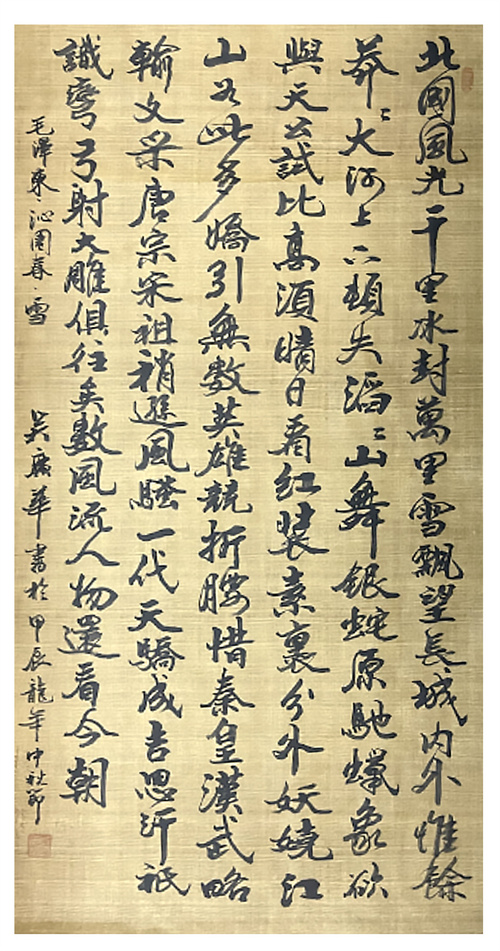 北國風光千里冰封萬里雪飄望長城内外惟餘
莽〻大河上下頓失滔〻山舞銀蛇原馳蠟象欲
與天公試比高須晴日看紅裝素裹分外妖嬈江
山如此多嬌引無數英雄競折腰惜秦皇漢武略
輸文采唐宗宋祖稍遜風騷一代天驕成吉思汗祇
識彎弓射大雕俱往矣數風流人物還看今朝
毛澤東·沁園春·雪 吴廣華書於甲辰龍年中秋節